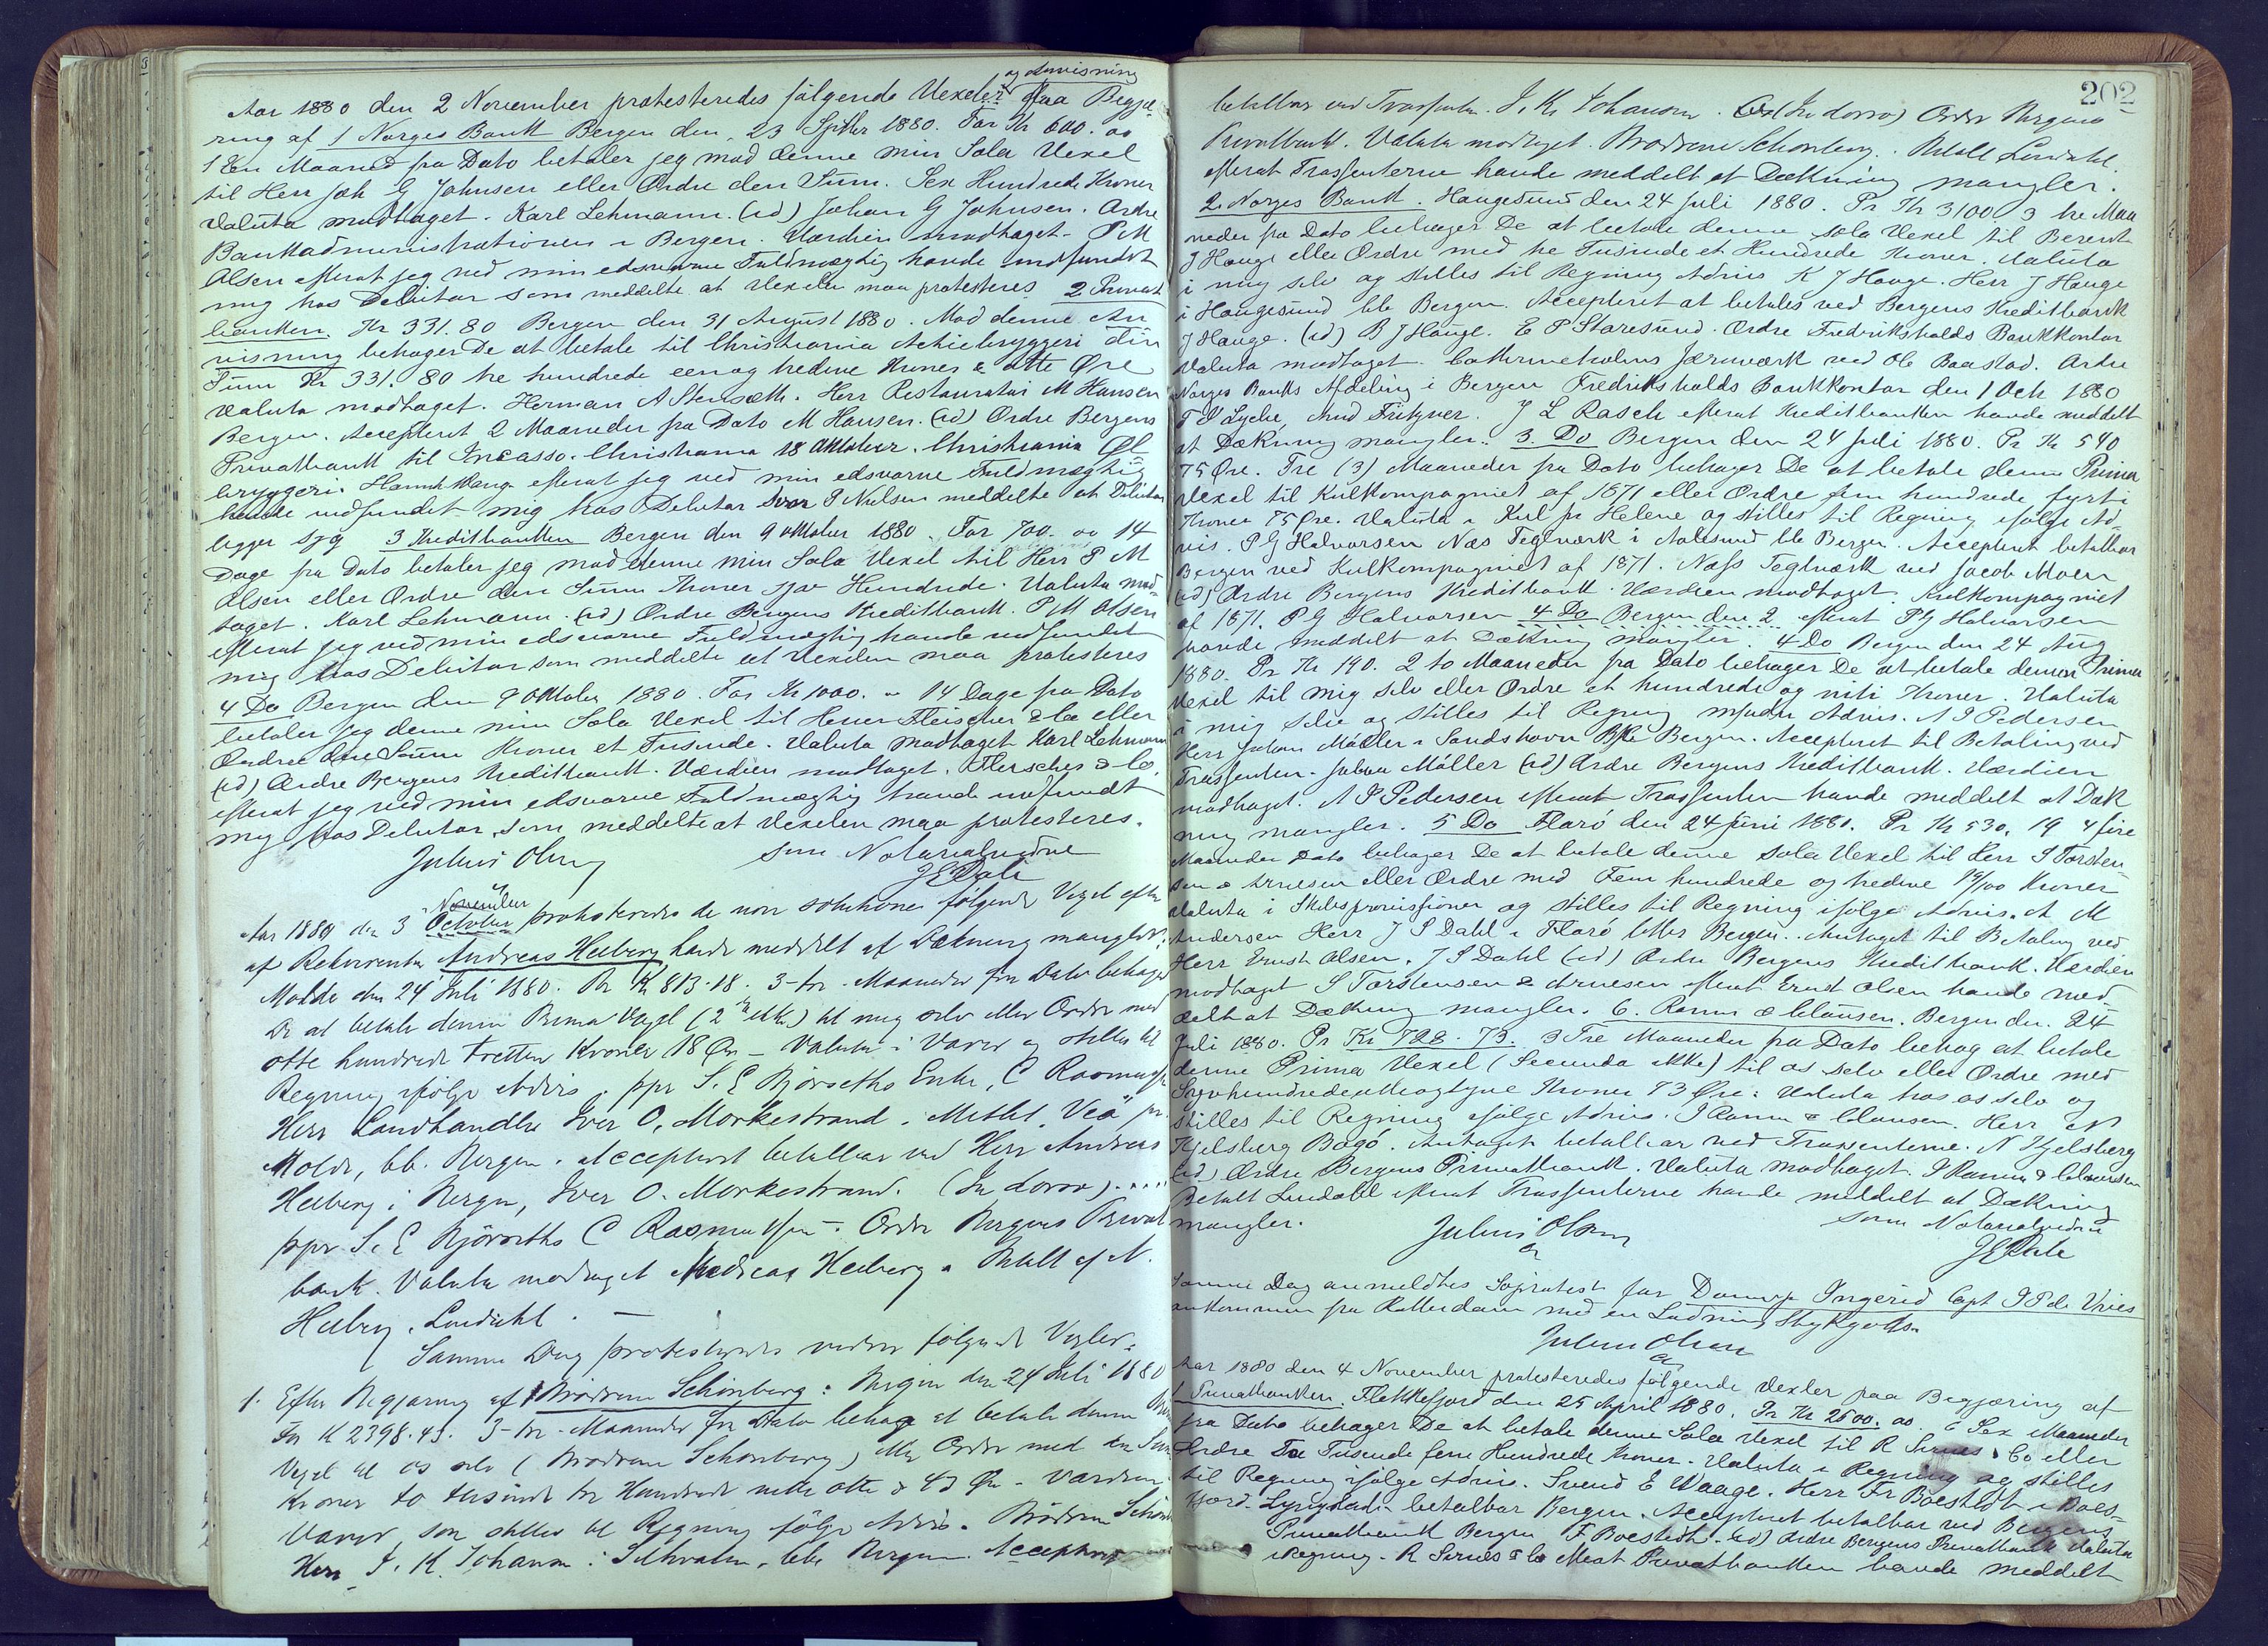 og Anvisning
Aar 1880 den 2 November protesteredes følgende Vexeler paa Begjæ-
ring af 1 Norges Bank Bergen den 23 Septbr 1880. For Kr 600. oo
1 En Maaned fra Dato betaler jeg mod denne min Sola Vexel
til Herr Joh G Johnsen eller Ordre den Sum. Sex Hundrede Kroner
Valuta modtaget. Karl Lehmann. (id) Johan G Johnsen. Ordre
Bankadministrationen i Bergen. Værdien modtaget. P M
Olsen efterat jeg ved min edsvorne Fuldmægtig havde indfundet
mig hos Debitor som meddelte at Vexelen maa protesteres 2 Privat
banken. Kr 331.80 Bergen den 31 August 1880. Mod denne An
visning behager De at betale til Christiania Actiebryggeri din
Sum Kr 331.80 tre hundrede een og tredive Kroner & otte Øre
Valuta modtaget. Herman A Stensæth. Herr Restauratør M Hansen
Bergen. Accepteret 2 Maaneder fra Dato M Hansen. (id) Ordre Bergens
Privatbank til Incasso. Christiania 18 Oktober. Christiania Øl-
bryggeri. efterat jeg ved min edsvorne Fuldmægtig
havde indfundet mig hos Debitor hvor P Nielsen meddelte at Debitor
ligger syg 3 Kreditbanken Bergen den 9 Oktober 1880. For 700. oo 14
Dage fra Dato betaler jeg mod denne min Sola Vexel til Herr P M
Olsen eller Ordre den Sum Kroner syv Hundrede. Valuta mod-
taget. Karl Lehmann. (id) Ordre Bergens Kreditbank. P M Olsen
efterat jeg ved min edsvorne Fuldmægtig havde indfundet
mig hos Debitor som meddelte at Vexelen maa protesteres
4 Do Bergen den 9 Oktober 1880. For Kr 1000. - 14 Dage fra Dato
betaler jeg denne min Sola Vexel til Herrer Fleischer & Co eller
Ordre den Sum Kroner et Tusinde. Valuta modtaget Karl Lehmann
(id) Ordre Bergens Kreditbank. Værdien modtaget. Fleischer & Co.
efterat jeg ved min edsvorne Fuldmægtig havde indfundet
mig hos Debitor, som meddelte at Vexelen maa protesteres.
Julius Olsen som Notarialvidne
J E Dale
November
Aar 1880 den 3 October protesteredes de non solutione følgende Vexel efter
af Rekvirenten Andreas Heiberg havde meddelt at Dækning mangler:
Molde den 24 Juli 1880. Pr Kr 813.18. 3-tre-Maaneder fra Dato behager
De at betale denne Prima Vexel (2da ikke) til mig selv eller Ordre med
otte hundrede tretten Kroner 18 Øre - Valuta i Varer og stilles til
Regning ifølge Advis. ppr S. E Bjørseths Enke, C Rasmussen
Herr Landhandler Iver O. Morkestrand. Mithet "Veø" pr.
Molde, bb. Bergen. Accepteret betalbar ved Herr Andreas
Heiberg i Bergen, Iver O. Morkestrand. (In dorso)....
ppr S. E Bjørseths C Rasmussen. Ordre Bergens Privat
bank. Valuta modtaget Andreas Heiberg. Betalt af N.
Heiberg. Lindahl. -
Samme Dag protesteredes videre følgende Vexler:
1. Efter Begjæring af Brødrene Schönberg: Bergen den 24 Juli 1880
For K 2398.43. 3-tre-Maaneder fra Dato behage at betale denne
Vexel til os selv (Brødrene Schönberg) eller Ordre med den Sum
Kroner to tusinde tre Hundrede nitti otte & 43 Øre - Værdien
Varer, som stilles til Regning følge Advis. Brødrene Schönberg
Herr J. K. Johansen i bbr Bergen. Accepteret
202
betalbar ved Trassenten. J. K. Johansen. (In dorso) Ordre Bergens
Privatbank. Valuta modtaget. Brødrene Schönberg. Betalt Lindahl.
efterat Trassenterne havde meddelt at Dækning mangler.
2. Norges Bank. Haugesund den 24 Juli 1880. Pr Kr 3100 3 tre Maa
neder fra Dato behager De at betale denne Sola Vexel til Berent
J Hauge eller Ordre med tre Tusinde et Hundrede Kroner. Valuta
i mig selv og stilles til Regning Advis K J Hauge. Herr J Hauge
i Haugesund bb Bergen. Accepteret at betales ved Bergens Kreditbank
J Hauge. (id) B J Hauge. E P Staresund. Ordre Fredrikshalds Bankkontor
Valuta modtaget. Catherineholms Jernværk ved Ole Baastad. Ordre
Norges Banks Afdeling i Bergen Fredrikshalds Bankkontor den 1 Octr 1880
J L Rasch efterat Kreditbanken havde meddelt
at Dækning mangler. 3. Do Bergen den 24 Juli 1880. Pr Kr 540
75 Øre. Tre (3) Maaneder fra Dato behager De at betale denne Prima
Vexel til Kulkompagniet af 1871 eller Ordre fem hundrede fyrti
Kroner 75 Øre. Valuta i Kul pr Helene og stilles til Regning ifølge Ad-
vis. P G Halvorsen Næs Teglværk i Aalesund bb Bergen. Accepteret betalbar
Bergen ved Kulkompagniet af 1871. Næss Teglværk ved Jacob Moen
(id) Ordre Bergens Kreditbank. Værdien modtaget. Kulkompagniet
af 1871. P G Halvorsen 4 Do Bergen den 2 efterat P G Halvorsen
havde meddelt at Dækning mangler. 4 Do Bergen den 24 Aug
1880. Pr Kr 190. 2 to Maaneder fra Dato behager De at betale denne Prima
Vexel til mig selv eller Ordre et hundrede og niti Kroner. Valuta
i mig selv og stilles til Regning Advis. A P Pedersen
Herr Johan Møller i Sandshavn Bergen. Accepteret til Betaling ved
Trassenten. Johan Møller (id) Ordre Bergens Kreditbank. Værdien
modtaget. A P Pedersen efterat Trassenten havde meddelt at Dæk
ning mangler. 5 Do Florø den 24 Juni 1880. Pr Kr 530. 19 4 fire
Maaneder Dato behager De at betale denne Sola Vexel til Herr S Torsten-
sen & Arnesen eller Ordre med Fem hundrede og tredive 19/100 Kroner
Valuta i Skibsprovissioner og stilles til Regning ifølge Advis. A M
Andersen Herr J S Dahl i Florø bbr Bergen. Antaget til Betaling ved
Herr Ernst Olsen. J S Dahl (id) Ordre Bergens Kreditbank. Værdien
modtaget S Torstensen & Arnesen efterat Ernst Olsen havde med-
delt at Dækning mangler. 6. Ramm & Clausen. Bergen den 24
Juli 1880. Pr Kr 728.73. 3 Tre Maaneder fra Dato behag at betale
denne Prima Vexel (Secunda ikke) til os selv eller Ordre med
Syvhundredeotteogtyve Kroner 73 Øre: Valuta hos os selv og
stilles til Regning ifølge Advis. J Ramm & Clausen. Herr N
Hjelsberg Bogø. Antaget betalbar ved Trassenterne. N Hjelsberg
(id) Ordre Bergens Privatbank. Valuta modtaget. J Ramm & Clausen
Betalt Lindahl efterat Trassenterne havde meddelt at Dækning
mangler. Julius Olsen som Notarialvidne
J E Dale
Samme Dag anmeldtes Søprotest for Dampsk Ingerid Capt J P de Vries
ankommen fra Rotterdam med en Ladning Stykgods.
Julius Olsen
Aar 1880 den 4 November protesteredes følgende Vexler paa Begjæring af
1 Privatbanken. Flekkefjord den 25 April 1880. Pr Kr 2500. oo 6 Sex Maaneder
fra Dato behager De at betale denne Sola Vexel til R Sirnes & Co eller
Ordre To Tusende fem Hundrede Kroner. Valuta i Regning og stilles
til Regning ifølge Advis. Svend E Waage. Herr Fr Boestedt i Boes-
betalbar Bergen. Accepteret betalbar ved Bergens
Privatbank Bergen F Boestedt. (id) Ordre Bergens Privatbank Valuta
i Regning. R Sirnes & Co efterat Privatbanken havde meddelt